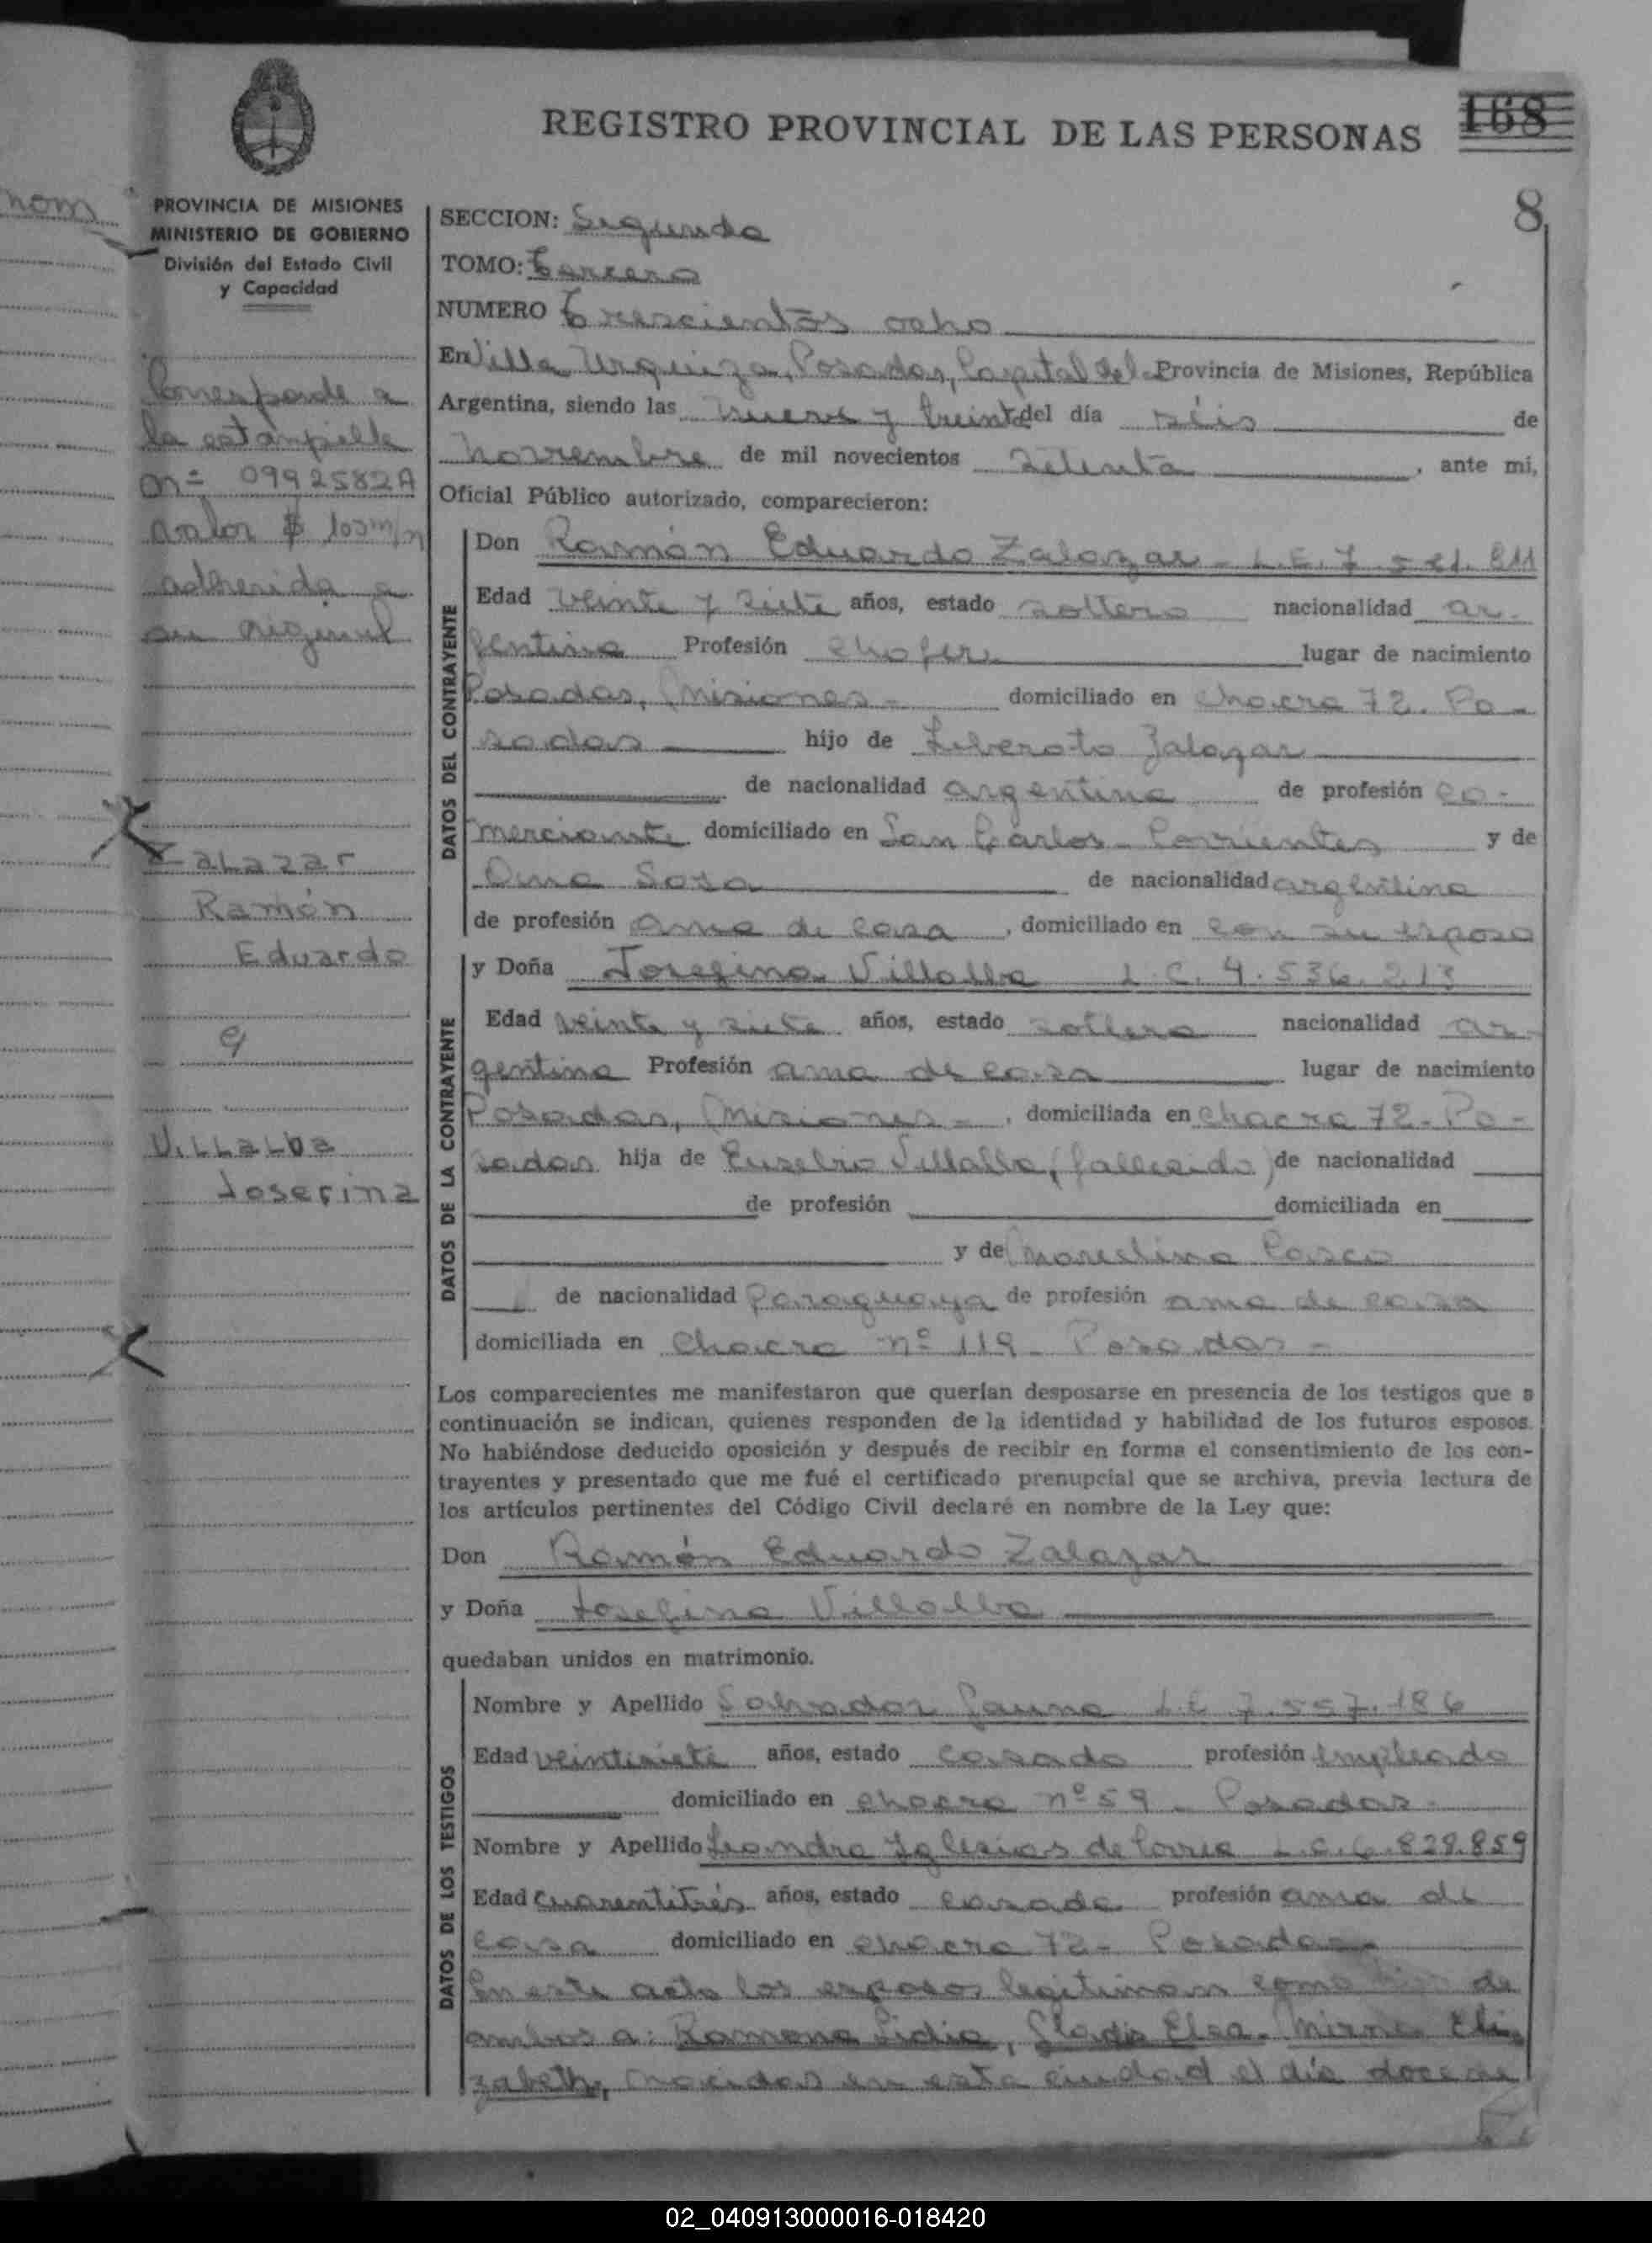 REGISTRO PROVINCIAL DE LAS PERSONAS
168
8
nom
PROVINCIA DE MISIONES
MINISTERIO DE GOBIERNO
División del Estado Civil
y Capacidad
Corresponde a
la estampilla
nº 0992582A
valor $ 100 m/n
adherida a
su original
Zalazar
Ramón
Eduardo
y
Villalba
Josefina
SECCION: Segunda
TOMO: Tercero
NUMERO Trescientos ocho
En Villa Urquiza, Posadas, Capital del Provincia de Misiones, República
Argentina, siendo las nueve y treinta del día séis de
noviembre de mil novecientos setenta, ante mi,
Oficial Público autorizado, comparecieron:
DATOS DEL CONTRAYENTE
Don Ramón Eduardo Zalazar - L.E. 7.521.811
Edad veinte y siete años, estado soltero nacionalidad ar-
gentina Profesión chofer lugar de nacimiento
Posadas, Misiones - domiciliado en chacra 72. Po-
sadas hijo de Liberato Zalazar
de nacionalidad argentina de profesión co-
merciante domiciliado en San Carlos - Corrientes y de
Sosa de nacionalidad argentina
de profesión ama de casa, domiciliado en con su esposo
DATOS DE LA CONTRAYENTE
y Doña Josefina Villalba L.C. 4.536.213
Edad veinte y siete años, estado soltera nacionalidad ar-
gentina Profesión ama de casa lugar de nacimiento
Posadas, Misiones -, domiciliada en chacra 72- Po-
sadas hija de Eusebio Villalba, (fallecido) de nacionalidad
de profesión domiciliada en
y de Marcelina
de nacionalidad Paraguaya de profesión ama de casa
domiciliada en Chacra nº 119 - Posadas -
Los comparecientes me manifestaron que querían desposarse en presencia de los testigos que a
continuación se indican, quienes responden de la identidad y habilidad de los futuros esposos.
No habiéndose deducido oposición y después de recibir en forma el consentimiento de los con-
trayentes y presentado que me fué el certificado prenupcial que se archiva, previa lectura de
los artículos pertinentes del Código Civil declaré en nombre de la Ley que:
Don Ramón Eduardo Zalazar
y Doña Josefina Villalba
quedaban unidos en matrimonio.
DATOS DE LOS TESTIGOS
Nombre y Apellido Salvador Gauna L.E 7.557.186
Edad veintisiete años, estado casado profesión empleado
domiciliado en chacra nº 59 - Posadas -
Nombre y Apellido Leandra Iglesias de L.C. 6.828.859
Edad cuarentitrés años, estado casada profesión ama de
casa domiciliado en chacra 72- Posadas
En este acto los esposos legitiman como de
ambos a: Ramona Lidia, Gladis Elsa - Mirna Eli-
zabeth, nacidas en esta ciudad el día doce de
02_040913000016-018420